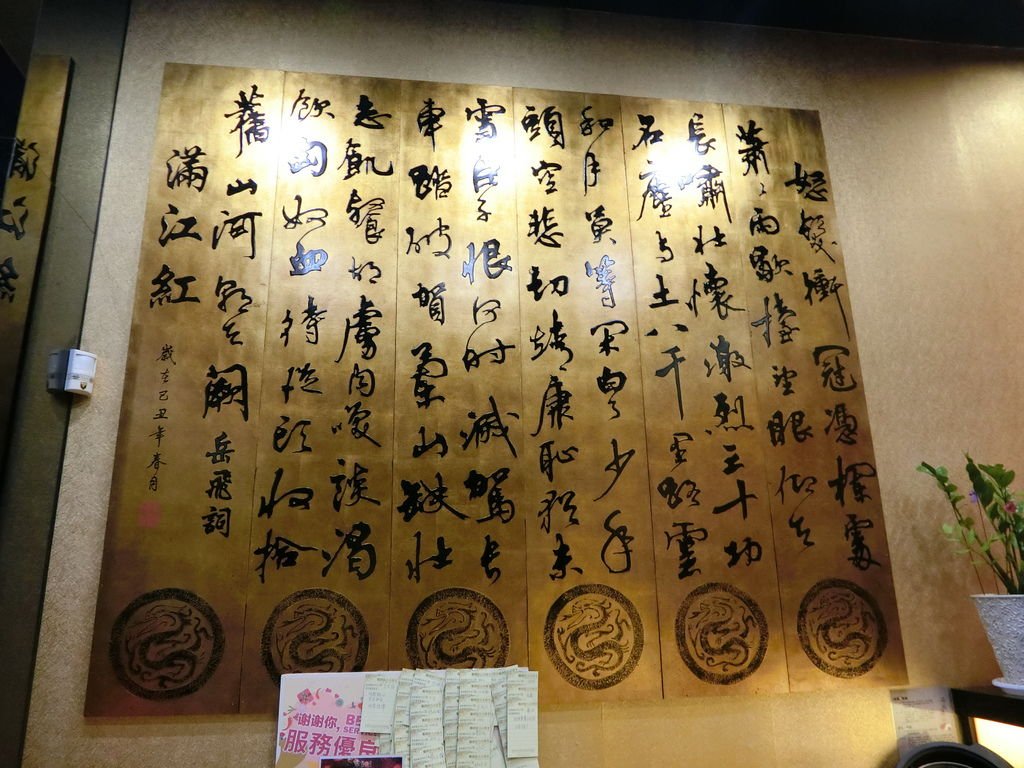 怒髮衝冠憑欄處
蕭々雨歇擡望眼仰天
長嘯壯懷激烈三十功
名塵与土八千里路雲
和月莫等閑白了少年
頭空悲切靖康恥猶未
雪臣子恨何時滅駕長
車踏破賀蘭山缺壯
志飢餐胡虜肉笑談渴
飲匈奴血待從頭收拾
舊山河朝天闕 岳飛詞
滿江紅
歲在己丑年春月
谢谢你,
服務優良